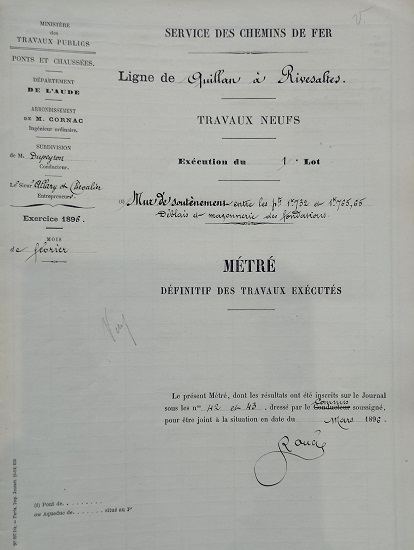 MINISTÈRE
des
TRAVAUX PUBLICS
PONTS ET CHAUSSÉES.
DÉPARTEMENT
DE L'AUDE
ARRONDISSEMENT
DE M. CORNAC
Ingénieur ordinaire.
SUBDIVISION
de M. Dupeyron
Conducteur.
Le Sieur Allary et
Entrepreneur
Exercice 1896.
MOIS
de février
SERVICE DES CHEMINS DE FER
Ligne de Quillan à Rivesaltes.
TRAVAUX NEUFS
Exécution du 1er Lot
(1) Mur de soutènement entre les pts 1k732 et 1k765,65
Déblais et maçonnerie des fondations
MÉTRÉ
DÉFINITIF DES TRAVAUX EXÉCUTÉS
Le présent Métré, dont les résultats ont été inscrits sur le Journal
sous les nos 42 et 43, dressé par le Commis Conducteur soussigné,
pour être joint à la situation en date du Mars 1896
(1) Pont de
ou Aqueduc de situé au Pt